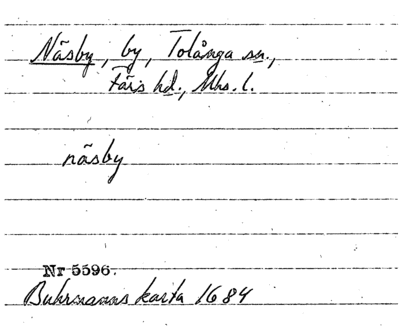 Näsby, by, Tolånga sn.,
Färs hd., Mhs. l.
näsby
Nr 5596.
Buhrmanns karta 1684